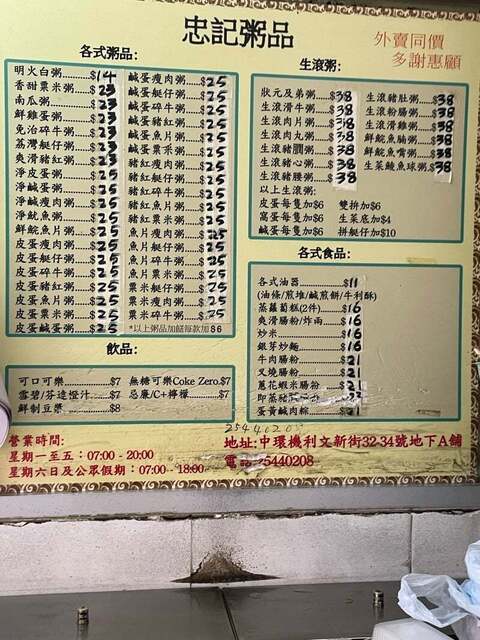 忠記粥品
外賣同價
多謝惠顧
各式粥品:
明火白粥..........$14
香甜粟米粥......$23
南瓜粥..............$23
鮮雞蛋粥..........$23
免治碎牛粥......$23
荔灣艇仔粥......$23
爽滑豬紅粥......$23
淨皮蛋粥..........$25
淨鹹蛋粥..........$25
淨鹹瘦肉粥......$25
淨魷魚粥..........$25
鮮鯇魚片粥......$25
皮蛋瘦肉粥......$25
皮蛋艇仔粥......$25
皮蛋碎牛粥......$25
皮蛋豬紅粥......$25
皮蛋魚片粥......$25
皮蛋粟米粥......$25
皮蛋鹹蛋粥......$25
鹹蛋瘦肉粥...$25
鹹蛋艇仔粥...$25
鹹蛋碎牛粥...$25
鹹蛋豬紅粥...$25
鹹蛋魚片粥...$25
鹹蛋粟米粥...$25
豬紅瘦肉粥...$25
豬紅艇仔粥...$25
豬紅碎牛粥...$25
豬紅魚片粥...$25
豬紅粟米粥...$25
魚片瘦肉粥...$25
魚片艇仔粥...$25
魚片碎牛粥...$25
魚片粟米粥...$25
粟米艇仔粥...$25
粟米瘦肉粥...$25
粟米碎牛粥...$25
*以上粥品加餸每款加$6
生滾粥:
狀元及弟粥...$38
生滾滑牛粥...$38
生滾肉片粥...$38
生滾肉丸粥...$38
生滾豬膶粥...$38
生滾豬心粥...$38
生滾豬腰粥...$38
生滾豬肚粥....$38
生滾粉腸粥....$38
生滾滑雞粥....$38
鮮鯇魚腩粥....$38
鮮鯇魚嘴粥....$38
生菜鯪魚球粥.$38
以上生滾粥:
皮蛋每隻加$6 雙拼加$6
窩蛋每隻加$6 生菜底加$4
鹹蛋每隻加$6 拼艇仔加$10
各式食品:
各式油器..............$11
(油條/煎堆/鹹煎餅/牛利酥)
蒸蘿蔔糕(2件)......$16
爽滑腸粉/炸兩......$16
炒米......................$16
銀芽炒麵..............$16
牛肉腸粉..............$21
叉燒腸粉..............$21
蔥花蝦米腸粉......$21
即蒸
蛋黃鹹肉粽..........$21
飲品:
可口可樂............$7
雪碧/芬達橙汁....$7
鮮制豆漿............$8
無糖可樂Coke Zero.$7
忌廉/C+檸檬........$7
25440208
營業時間:
星期一至五：07:00 - 20:00
星期六日及公眾假期：07:00 - 18:00
地址:中環機利文新街32-34號地下A舖
電話:25440208